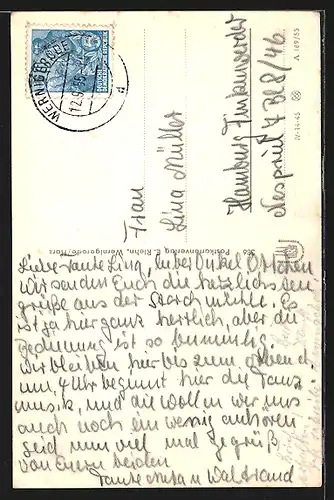 WERNIGERODE
12.9.55
d
Frau
Lina Müller
Hamburg Finkenwerder
Nesspriel 4 Bl 8/46
A 189/55
IV-14-45
Postkartenverlag E. Riehn, Wernigerode/Harz
Liebe Tante Lina, lieber Onkel
wir senden Euch die herzlichsten
grüße aus der Storchmühle. Es
ist ja hier ganz herrlich, aber die
Bedienung ist so bummelig.
Wir bleiben hier bis zum Abend.
um 4 Uhr beginnt hier die Tanz
musik, und die wollen wir uns
auch noch ein wenig anhören
seid nun viel mal gegrüß
von Euern beiden
Tante u Waltraud